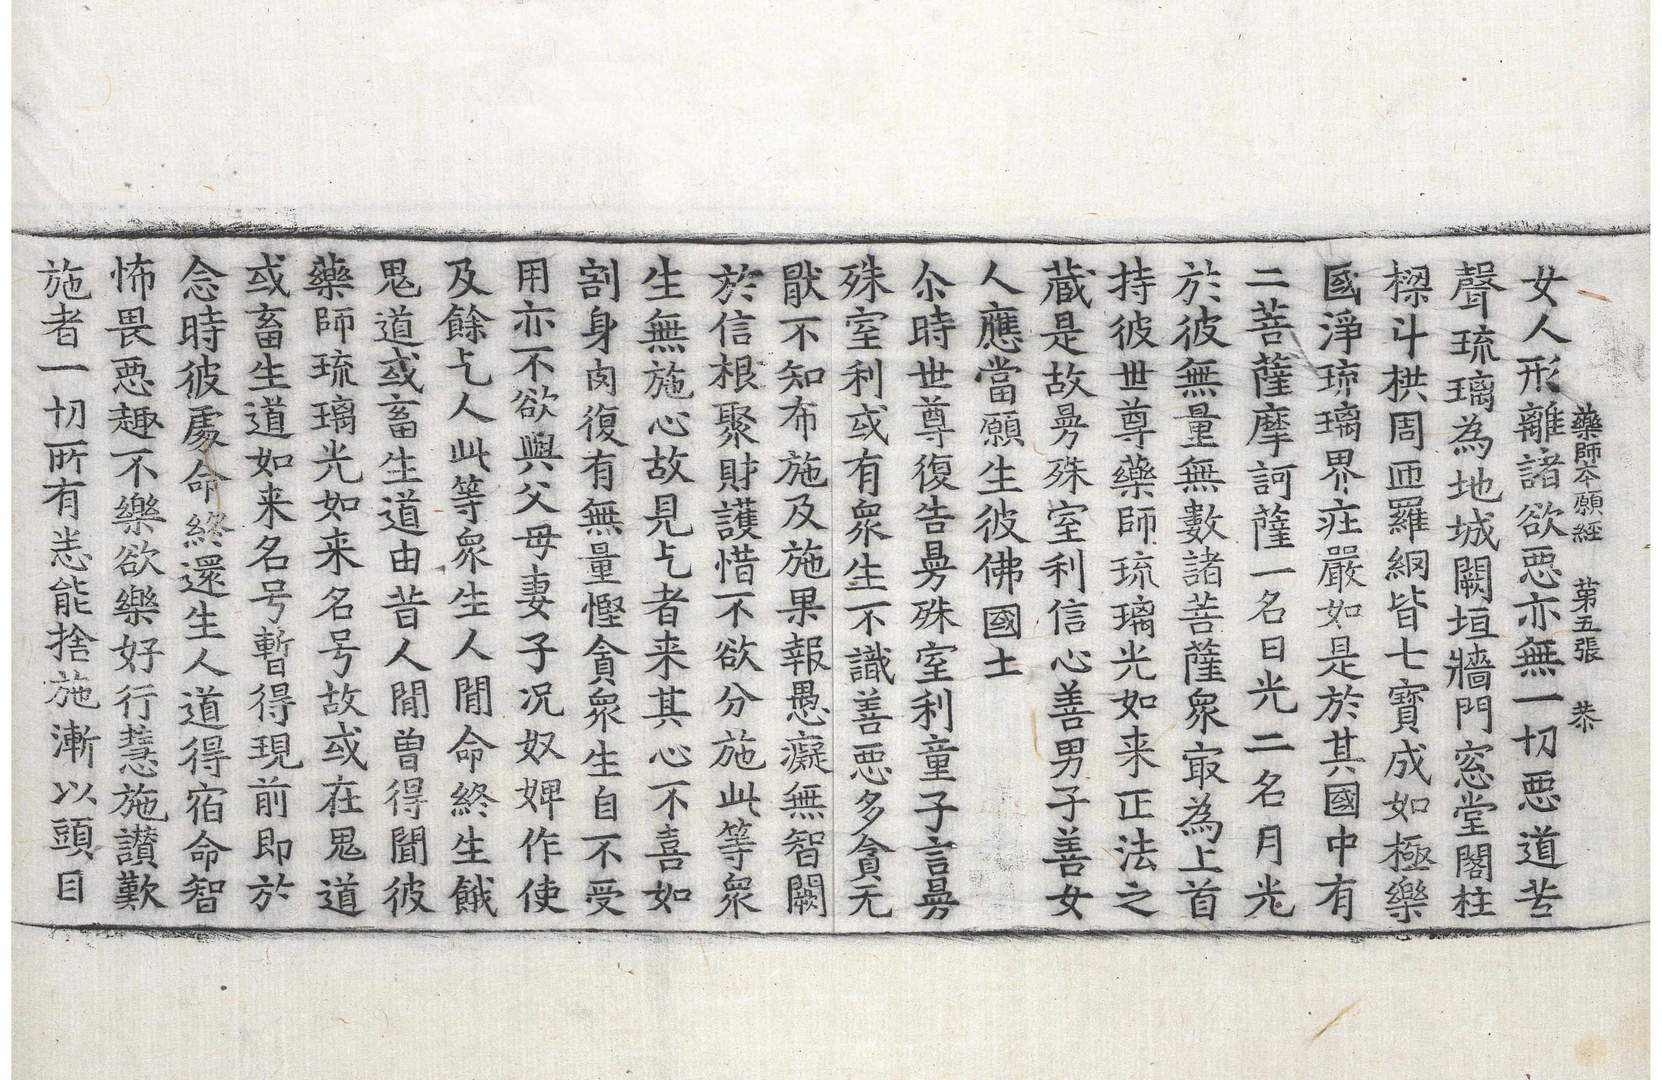 藥師本願經 第五張 恭
女人形離諸欲惡亦無一切惡道苦
聲琉璃為地城闕垣牆門窓堂閣柱
樑斗栱周匝羅網皆七寶成如極樂
國淨琉璃界庄嚴如是於其國中有
二菩薩摩訶薩一名日光二名月光
於彼無量無數諸菩薩衆寂為上首
持彼世尊藥師琉璃光如来正法之
藏是故曼殊室利信心善男子善女
人應當願生彼佛國土
尒時世尊復告曼殊室利童子言曼
殊室利或有衆生不識善惡多貪无
猒不知布施及施果報愚癡無智闕
於信根聚財護惜不欲分施此等衆
生無施心故見乞者来其心不喜如
割身肉復有無量慳貪衆生自不受
用亦不欲與父母妻子况奴婢作使
及餘乞人此等衆生人間命終生餓
鬼道或畜生道由昔人間曽得聞彼
藥師琉璃光如来名号故或在鬼道
或畜生道如来名号暫得現前即於
念時彼處命終還生人道得宿命智
怖畏惡趣不樂欲樂好行慧施讃歎
施者一切所有悉能捨施漸以頭目